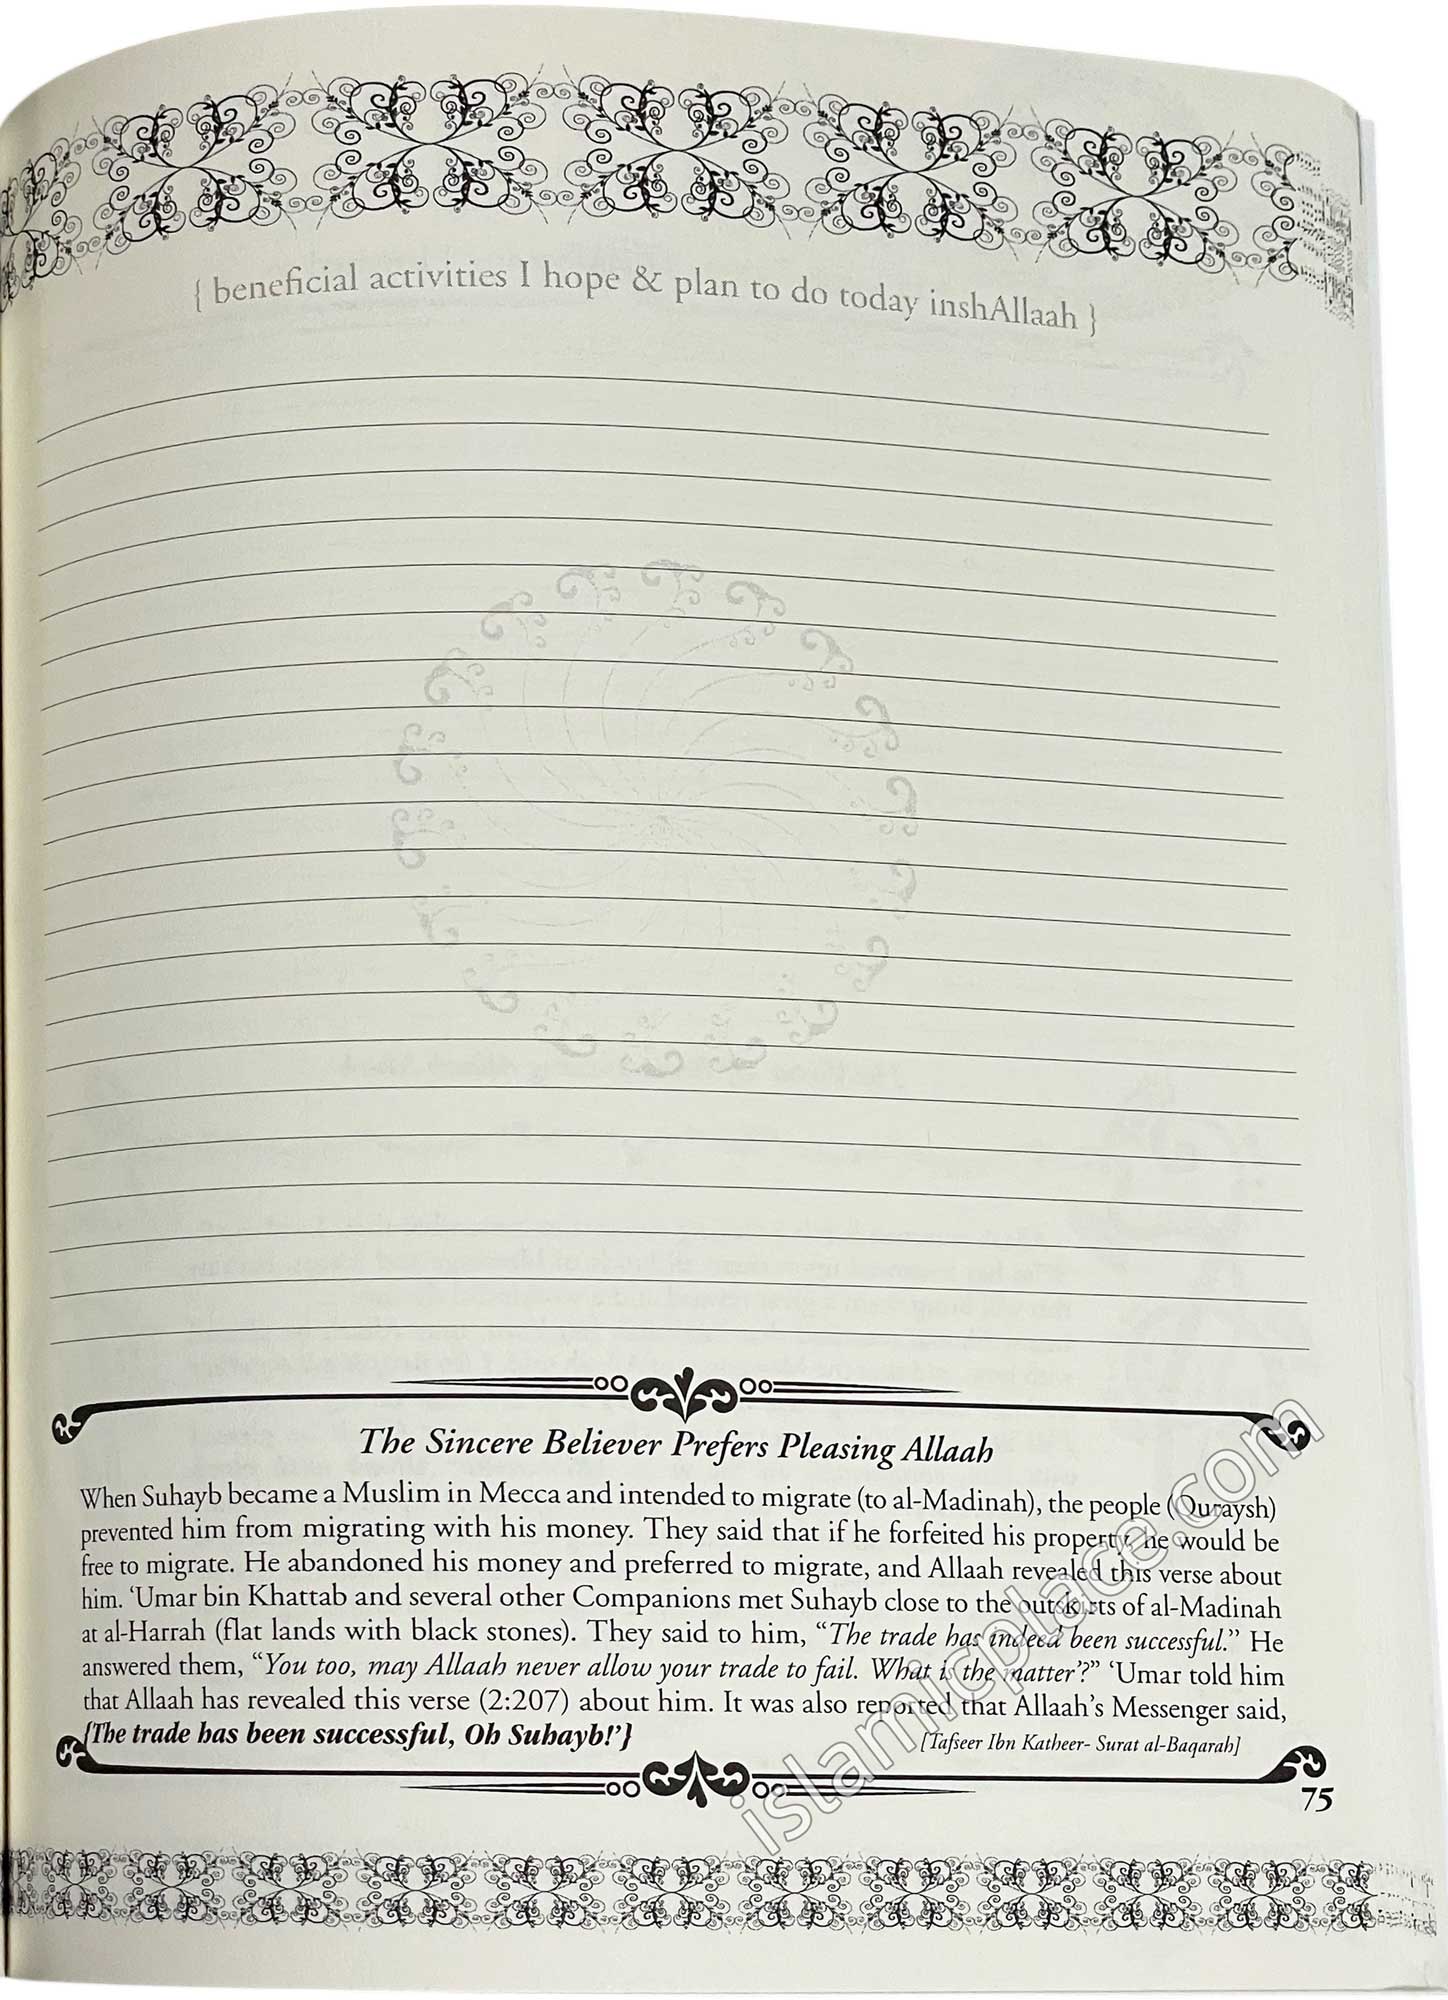 { beneficial activities I hope & plan to do today inshAllaah }
The Sincere Believer Prefers Pleasing Allaah
When Suhayb became a Muslim in Mecca and intended to migrate (to al-Madinah), the people (Quraysh)
prevented him from migrating with his money. They said that if he forfeited his property, he would be
free to migrate. He abandoned his money and preferred to migrate, and Allaah revealed this verse about
him. ‘Umar bin Khattab and several other Companions met Suhayb close to the outskirts of al-Madinah
at al-Harrah (flat lands with black stones). They said to him, “The trade has indeed been successful.” He
answered them, “You too, may Allaah never allow your trade to fail. What is the matter’?” ‘Umar told him
that Allaah has revealed this verse (2:207) about him. It was also reported that Allaah’s Messenger said,
{The trade has been successful, Oh Suhayb!’}
[Tafseer Ibn Katheer- Surat al-Baqarah]
75
islamicplace.com